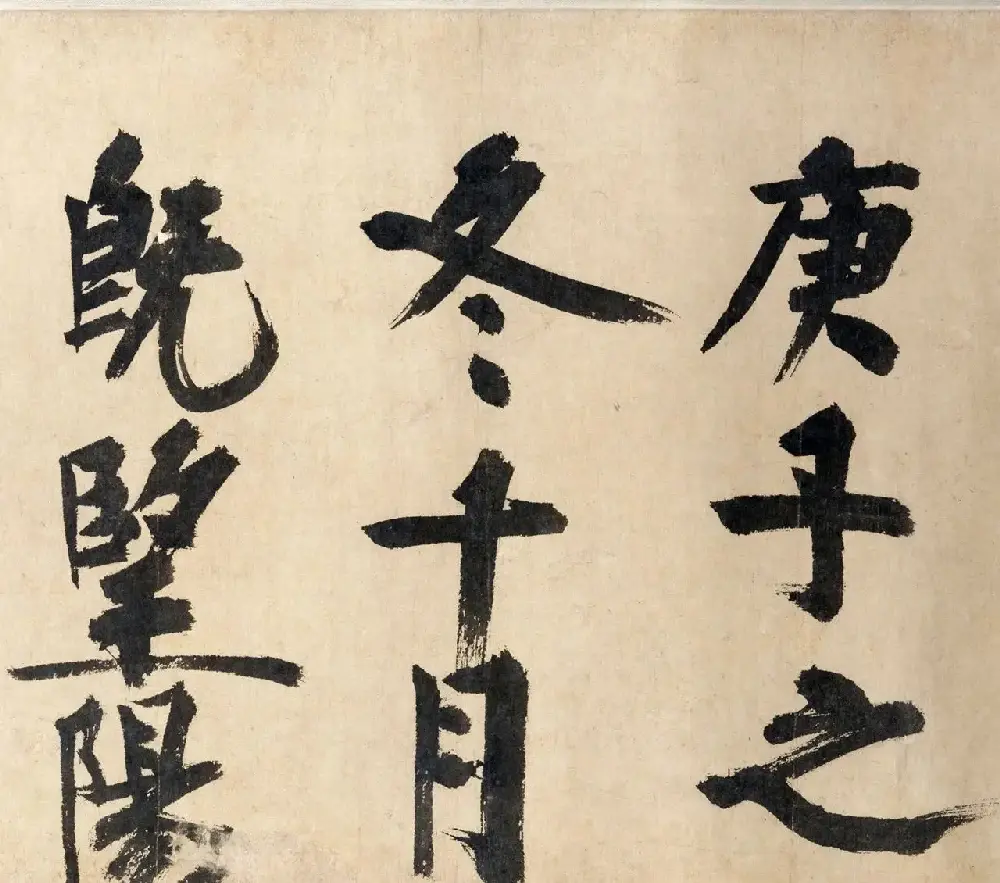 庚子之
冬十月
既朢陽